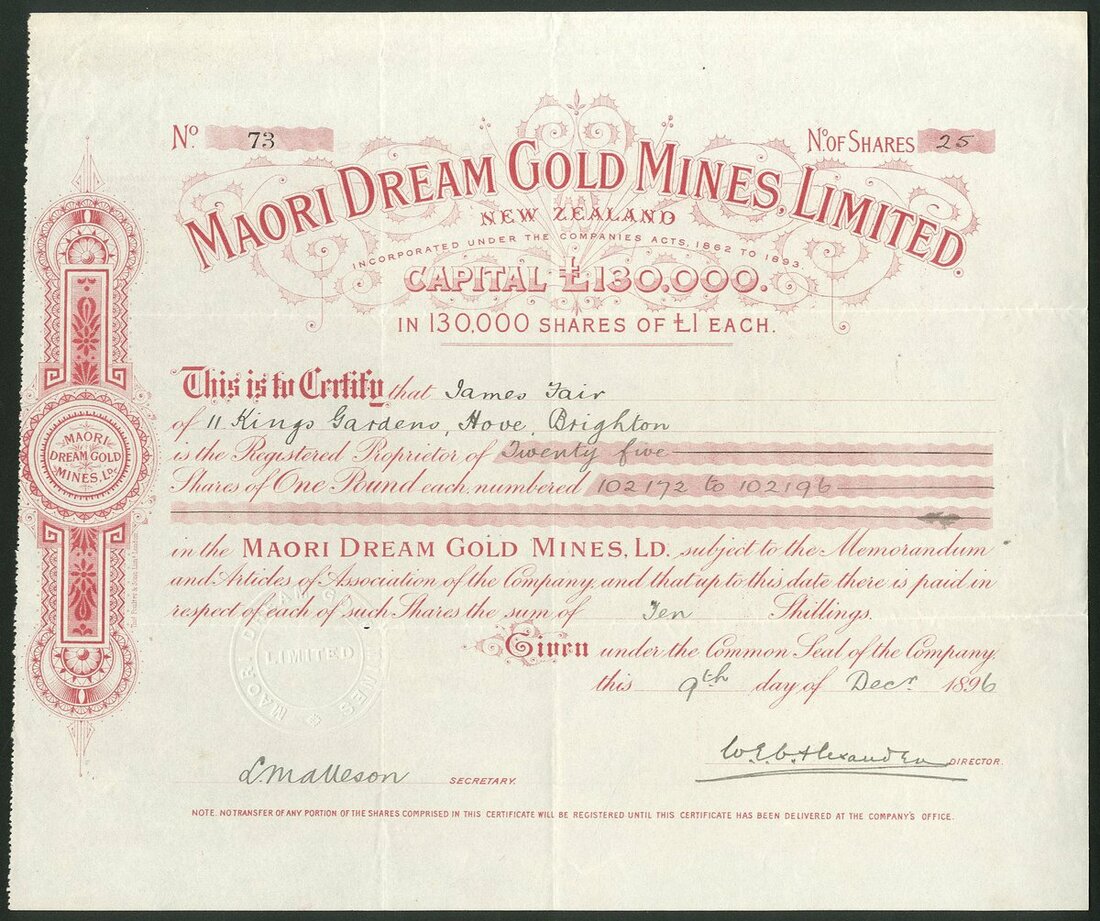 No. 73
No. OF SHARES 25
MAORI DREAM GOLD MINES, LIMITED.
NEW ZEALAND
INCORPORATED UNDER THE COMPANIES ACTS, 1862 TO 1893.
CAPITAL £130,000.
IN 130,000 SHARES OF £1 EACH.
This is to Certify that James Fair
of 11 Kings Gardens, Hove, Brighton
is the Registered Proprietor of Twenty five
Shares of One Pound each, numbered 102172 to 102196
in the MAORI DREAM GOLD MINES, LD. subject to the Memorandum
and Articles of Association of the Company, and that up to this date there is paid in
respect of each of such Shares the sum of Ten Shillings.
Given under the Common Seal of the Company.
this 9th day of Decr 1896
MAORI
DREAM GOLD
MINES, LD.
MAORI DREAM GOLD MINES
LIMITED
SECRETARY.
W. E. C. Alexander DIRECTOR.
NOTE. NO TRANSFER OF ANY PORTION OF THE SHARES COMPRISED IN THIS CERTIFICATE WILL BE REGISTERED UNTIL THIS CERTIFICATE HAS BEEN DELIVERED AT THE COMPANY'S OFFICE.